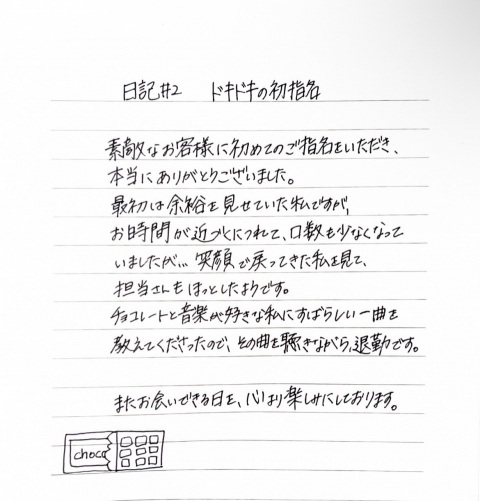 日記#2 ドキドキの初指名
素敵なお客様に初めてのご指名をいただき、
本当にありがとうございました。
最初は余裕を見せていた私ですが、
お時間が近づくにつれて、口数も少なくなって
いましたが… 笑顔で戻ってきた私を見て、
担当さんもほっとしたようです。
チョコレートと音楽が好きな私にすばらしい一曲を
教えてくださったので、その曲を聴きながら、退勤です。
またお会いできる日を、心より楽しみにしております。
choco